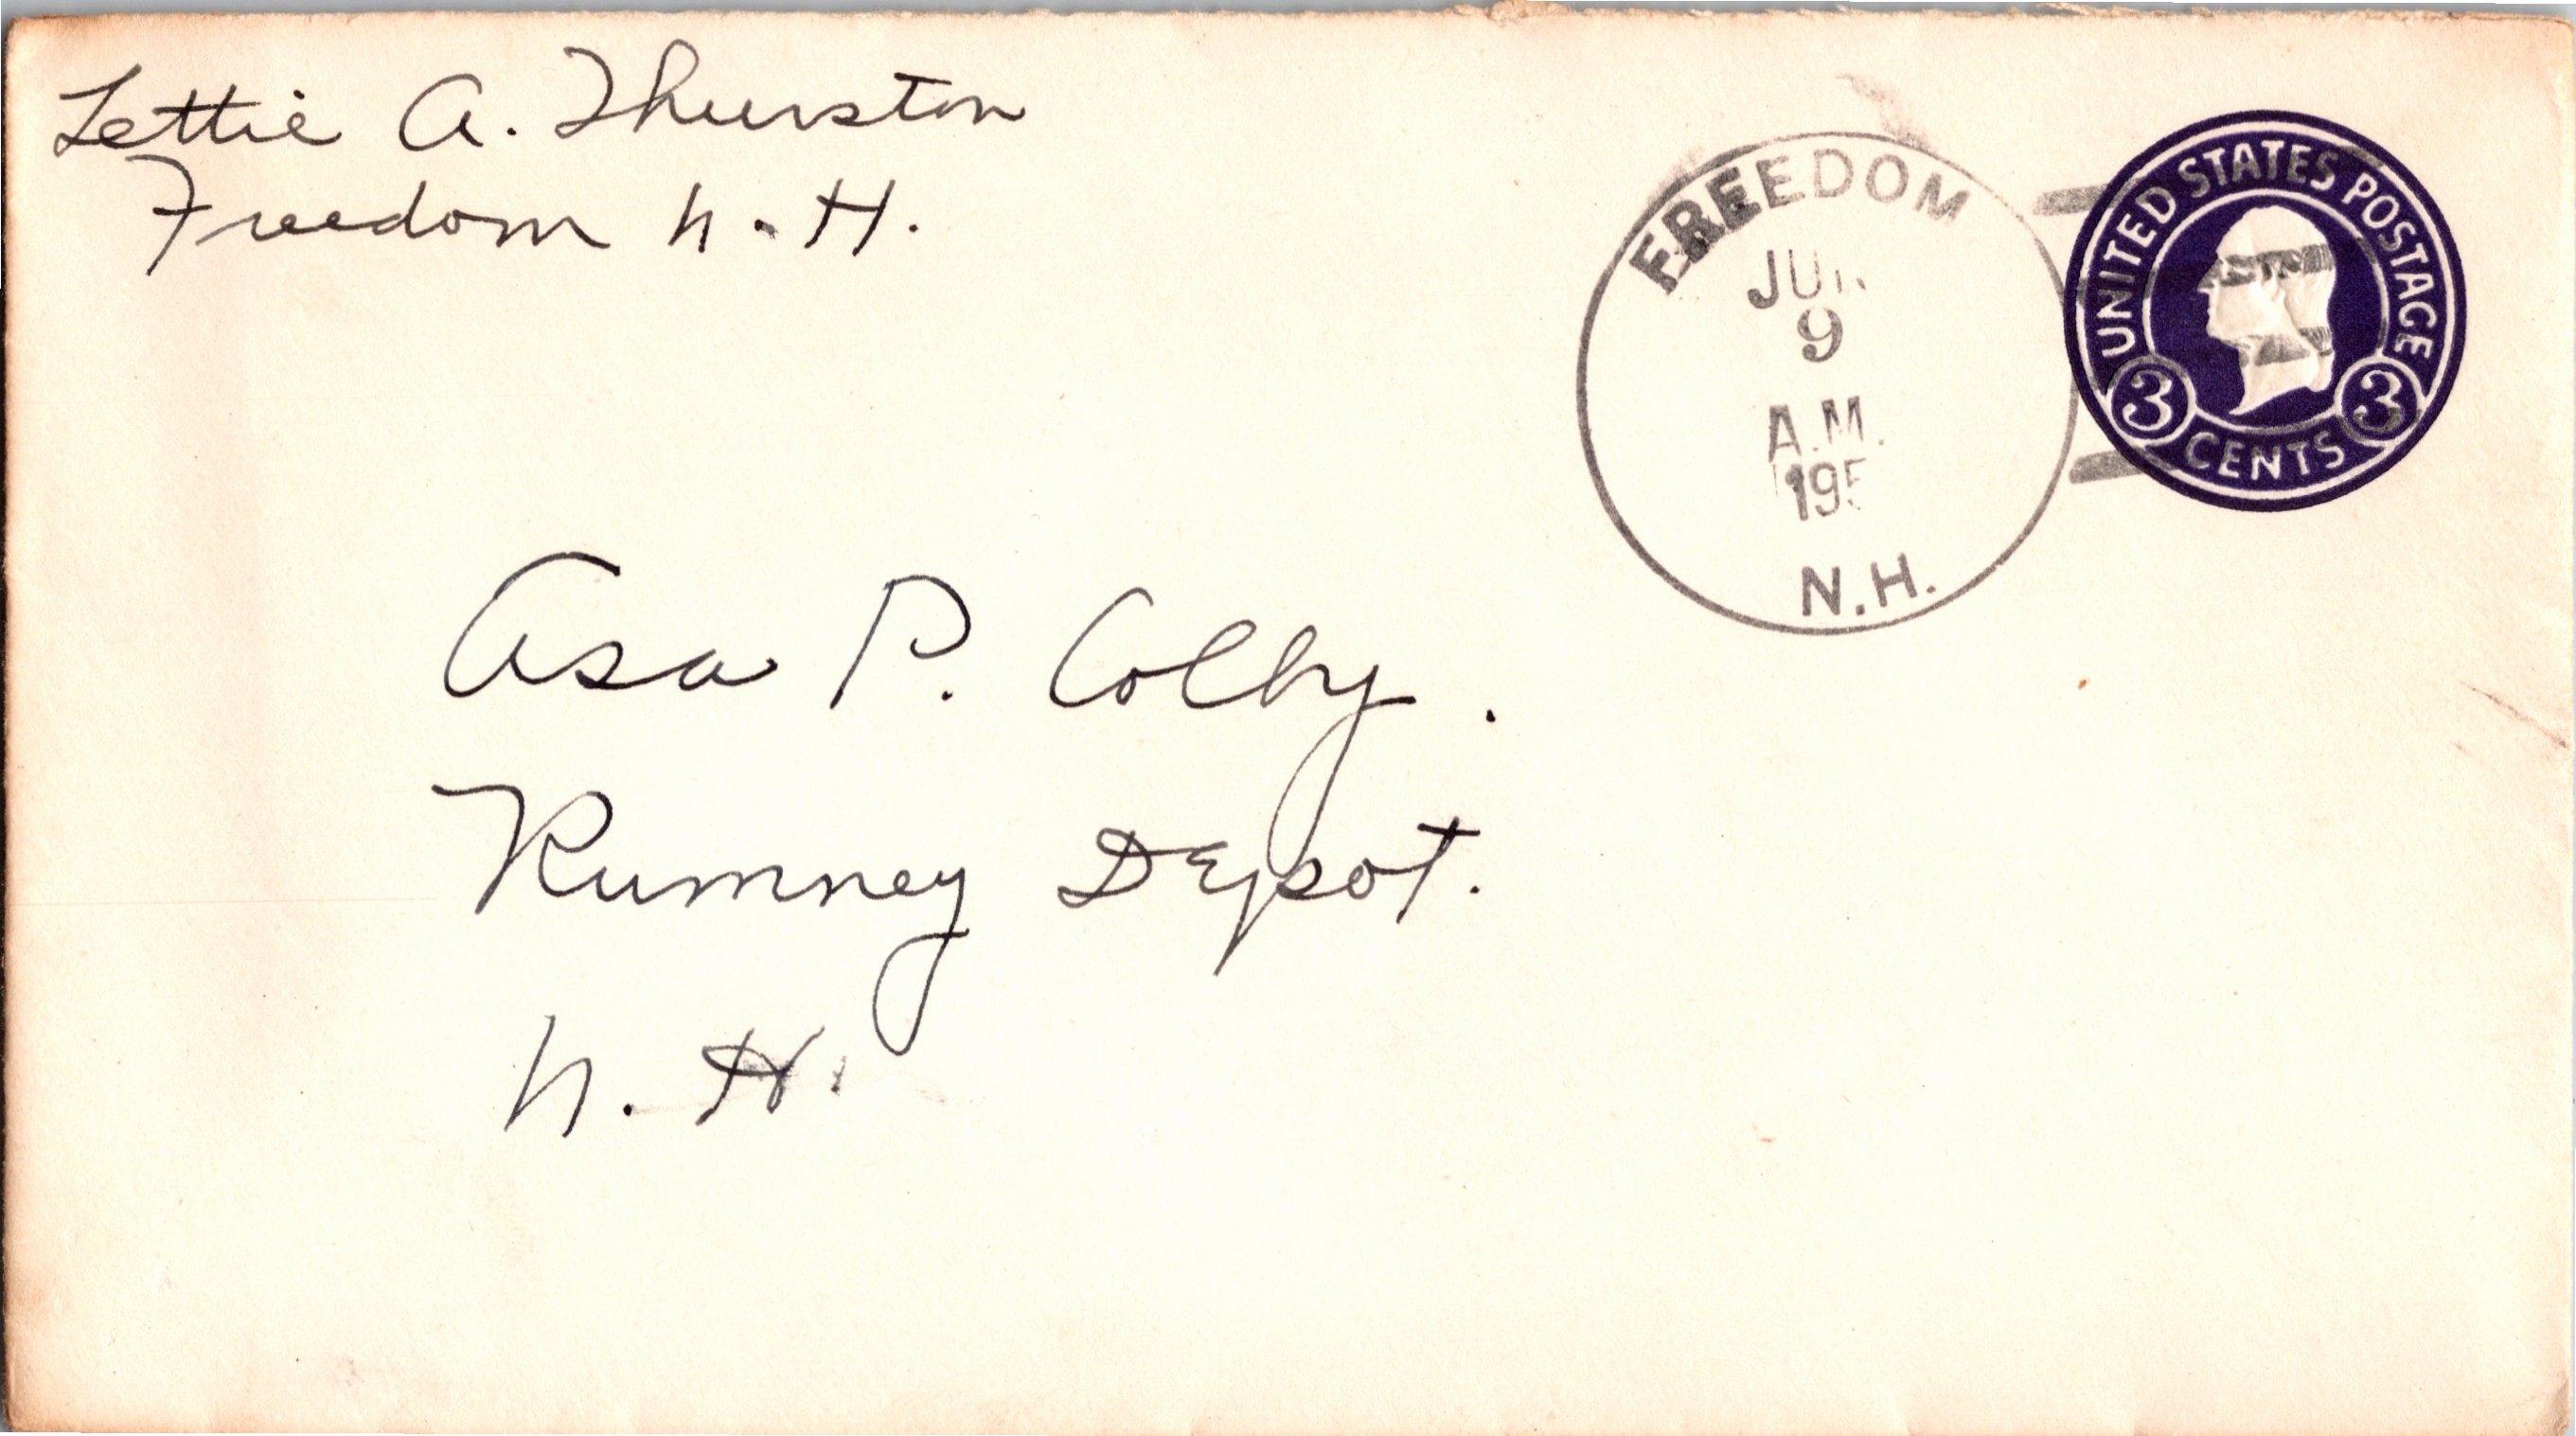 Lettie A. Thurston
Freedom N.H.
FREEDOM
9
A.M.
N.H.
UNITED STATES POSTAGE
3 CENTS 3
Asa P. Colby.
Rumney Depot.
N.H.